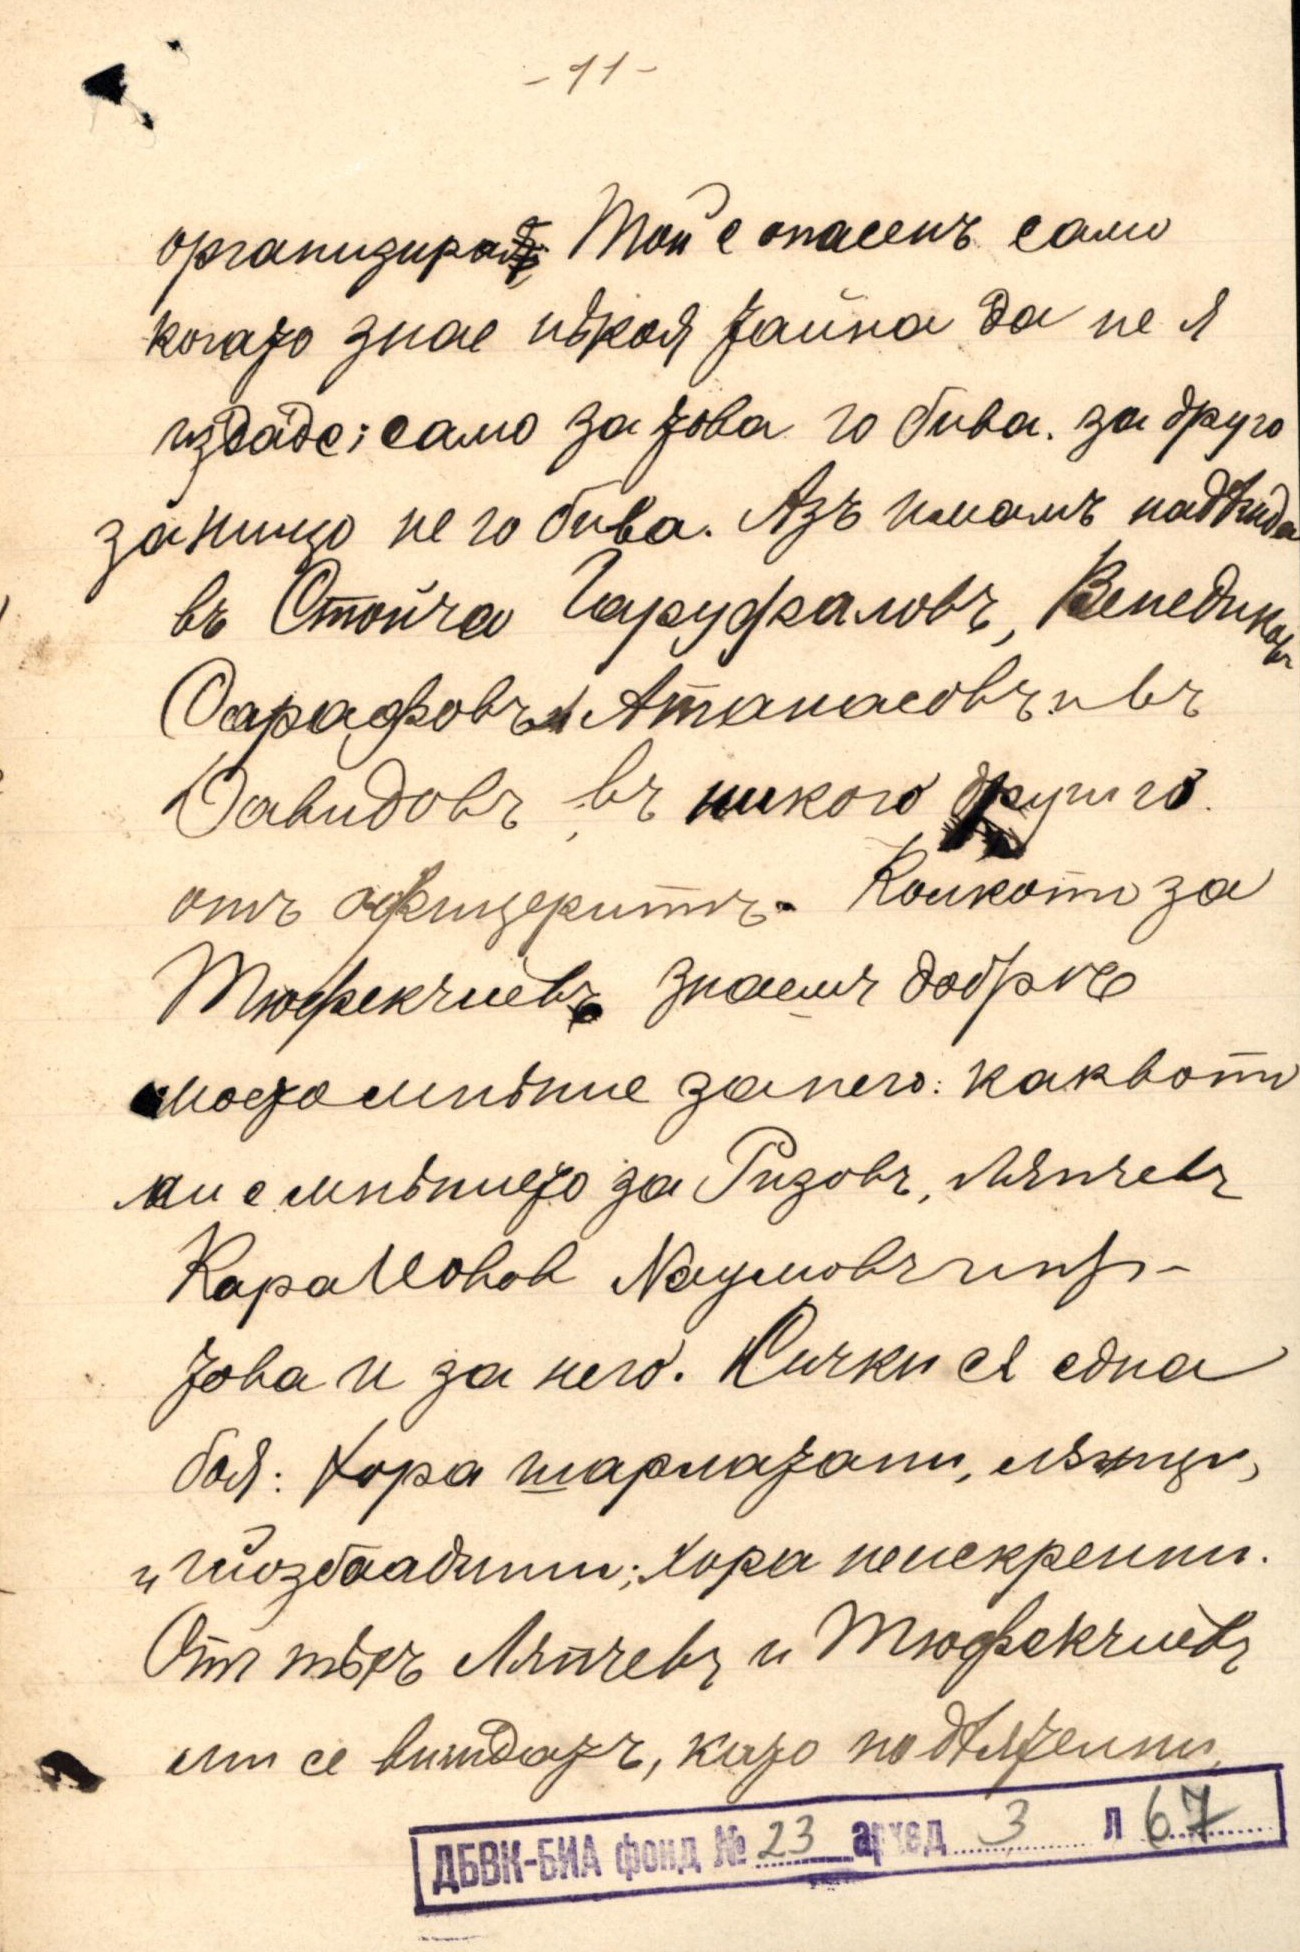 -11-
организира Той е опасенъ само
когато знае нѣкоя тайна да не я
издаде; само за това го бива. за друго
за нищо не го бива. Азъ имамъ надѣжда
въ Стойча Гаруфаловъ, Венедиковъ
Сарафовъ, Атанасовъ и въ
Давидовъ въ никого другиго
отъ офицеритѣ. Колкото за
Тюфекчиевъ знаешъ добрѣ
моето мнѣние за него: каквото
ми е мнѣнието за Ризовъ, Ляпчевъ
Карайовов Наумовъ и пр. -
това и за него. Сички сѫ една
боя: хора шарлатани, лъжци,
и гйозбааджии; хора неискренни.
Отъ тѣхъ Ляпчевъ и Тюфекчиевъ
ми се виждатъ, като по дѣятелни,
ДБВК-БИА фонд № 23 архед 3 л 67